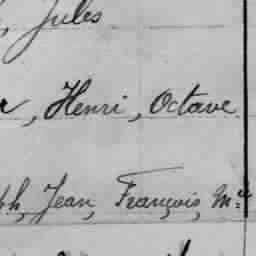 , Jules
r, Henri, Octave
ph, Jean, François, M.